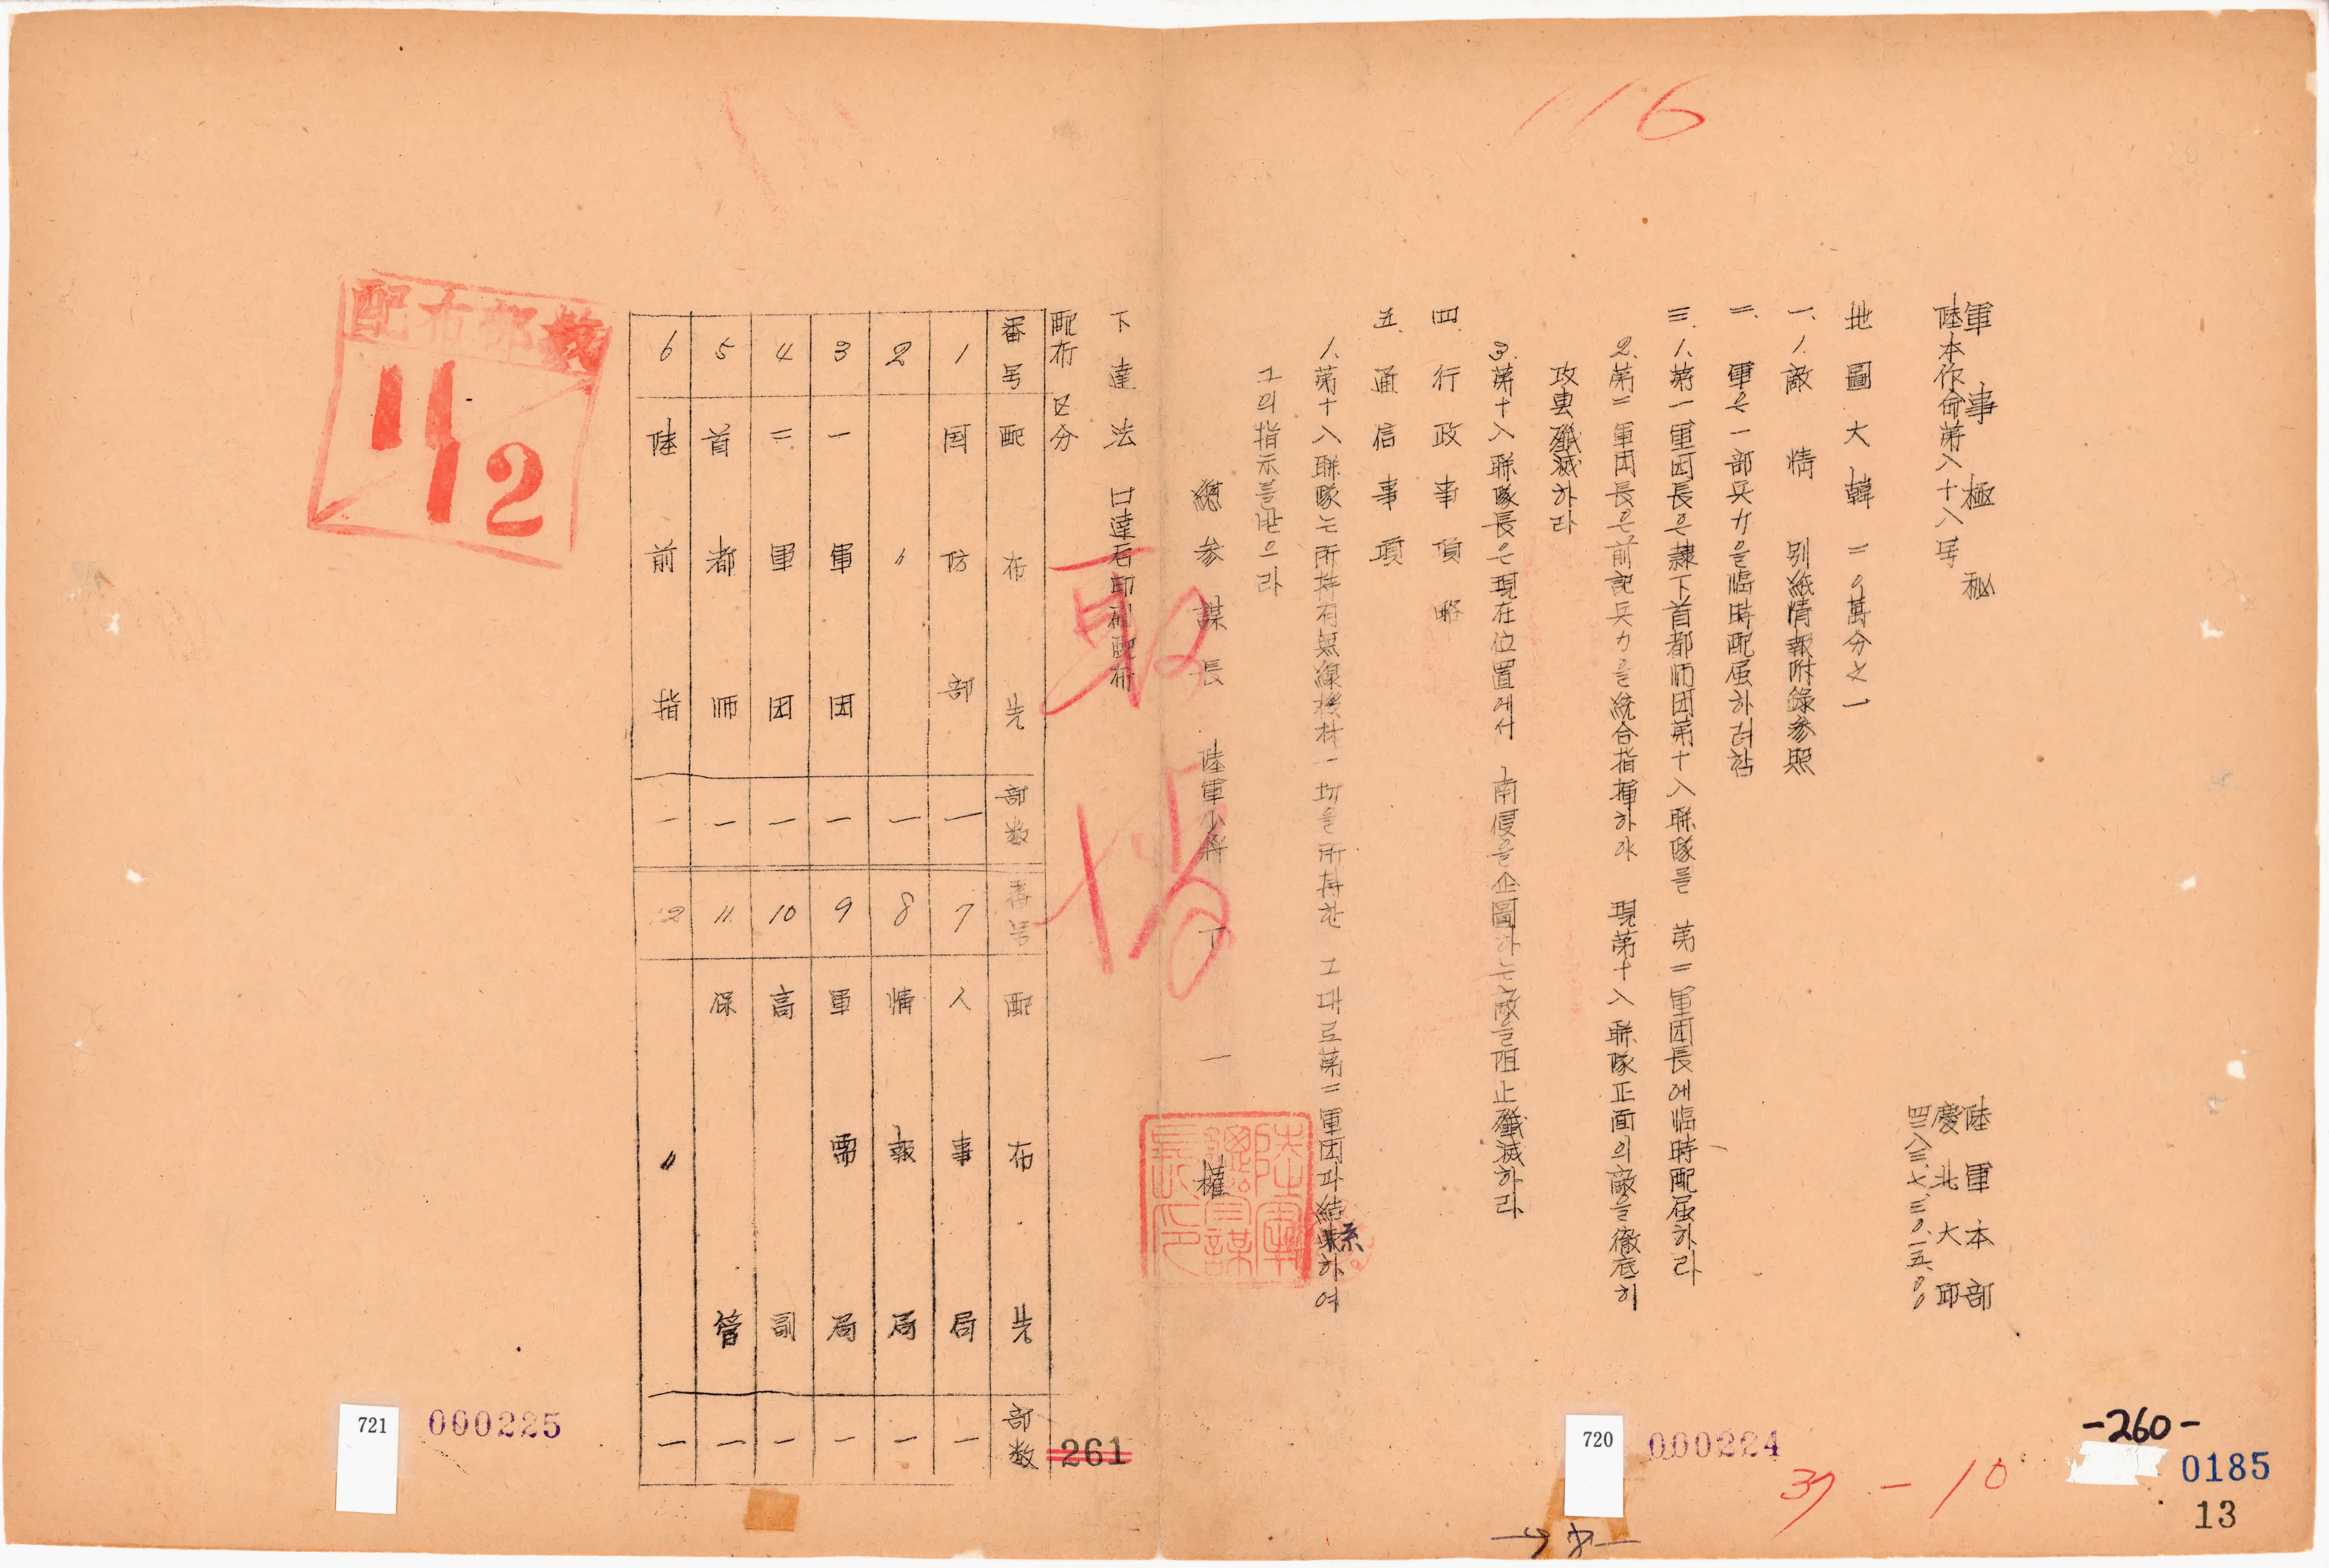 116
軍事極秘
陸本作命第八十八号
陸軍本部
慶北大邱
四二八三、七、三〇、一五、〇〇
地圖大韓 二五萬分之一
一、1.敵情 別紙情報附錄參照
二、軍은一部兵力을臨時配屬하려함
三、1.第一軍団長은隷下首都师団第十八聯隊를 第二軍団長에臨時配屬하라
2.第二軍団長은前記兵力을統合指揮하야 現第十八聯隊正面의敵을徹底히
攻勢殲滅하라
3.第十八聯隊長은現在位置에서 南侵을企圖하는敵을阻止殲滅하라
四、行政事項 略
五、通信事項
1.第十八聯隊는所持有無線機材一切를所持한 그대로第二軍団과結系하여
그의指示를받으라
總參謀長 陸軍少將 丁一權
陸軍總參謀長印
下達法 口達后印刷配布
配布区分
番号 配布先 部数 番号 配布先 部数
1 国防部 一 7 人事局 一
2 〃 一 8 情報局 一
3 一軍団 一 9 軍需局 一
4 二軍団 一 10 高副 一
5 首都师 一 11 保管 一
6 陸前指 一 12 〃 一
配布部数
11
12
721
000225
261
720
000224
37-10
-260-
0185
13